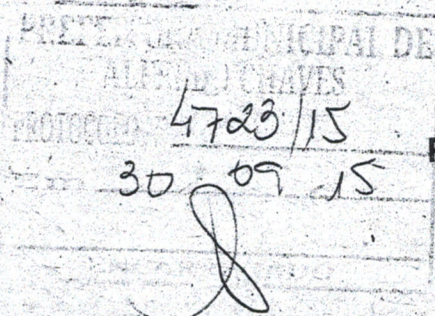 PREFEITURA MUNICIPAL DE
ALFREDO CHAVES
PROTOCOLO 4723/15
Em 30 09 15